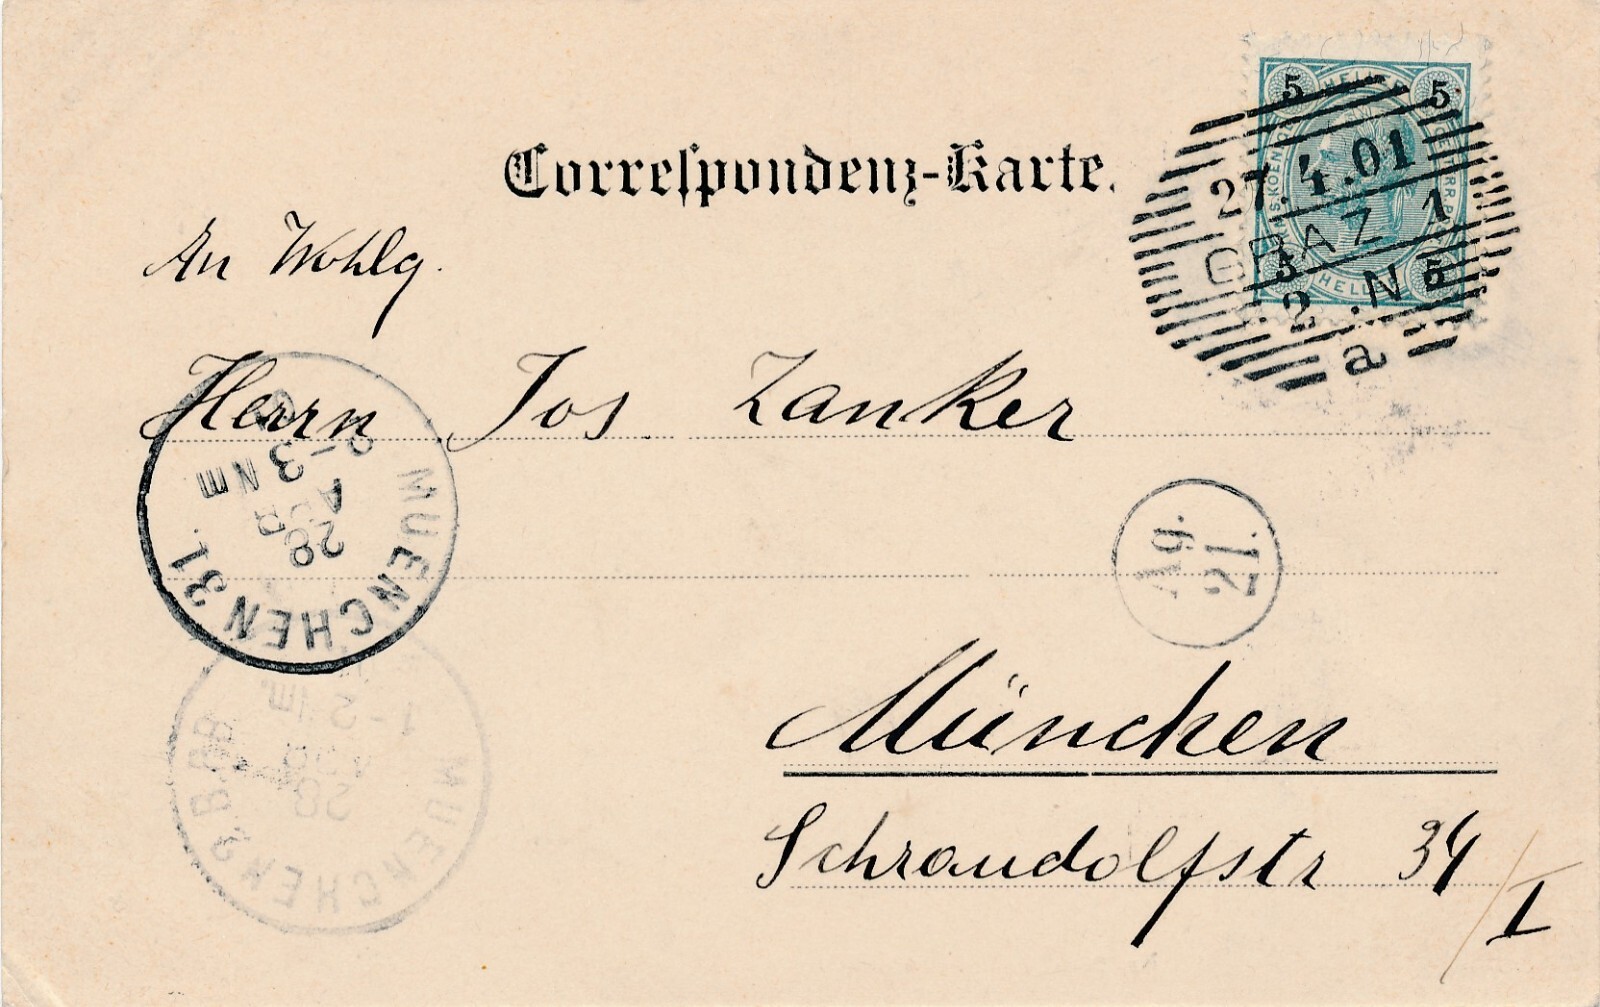 Correspondenz-Karte.
5 HELLER 5
27.4.01
GRAZ 1
5 5
HELLER
2 . N
a
An Wohlg.
Herrn Jos Zanker
MUENCHEN 31.
28
APR
2-3 NM
Ag.
21.
München
Schraudolfstr 34/I
MUENCHEN 2 B.B.
28
APR
1-2 NM.